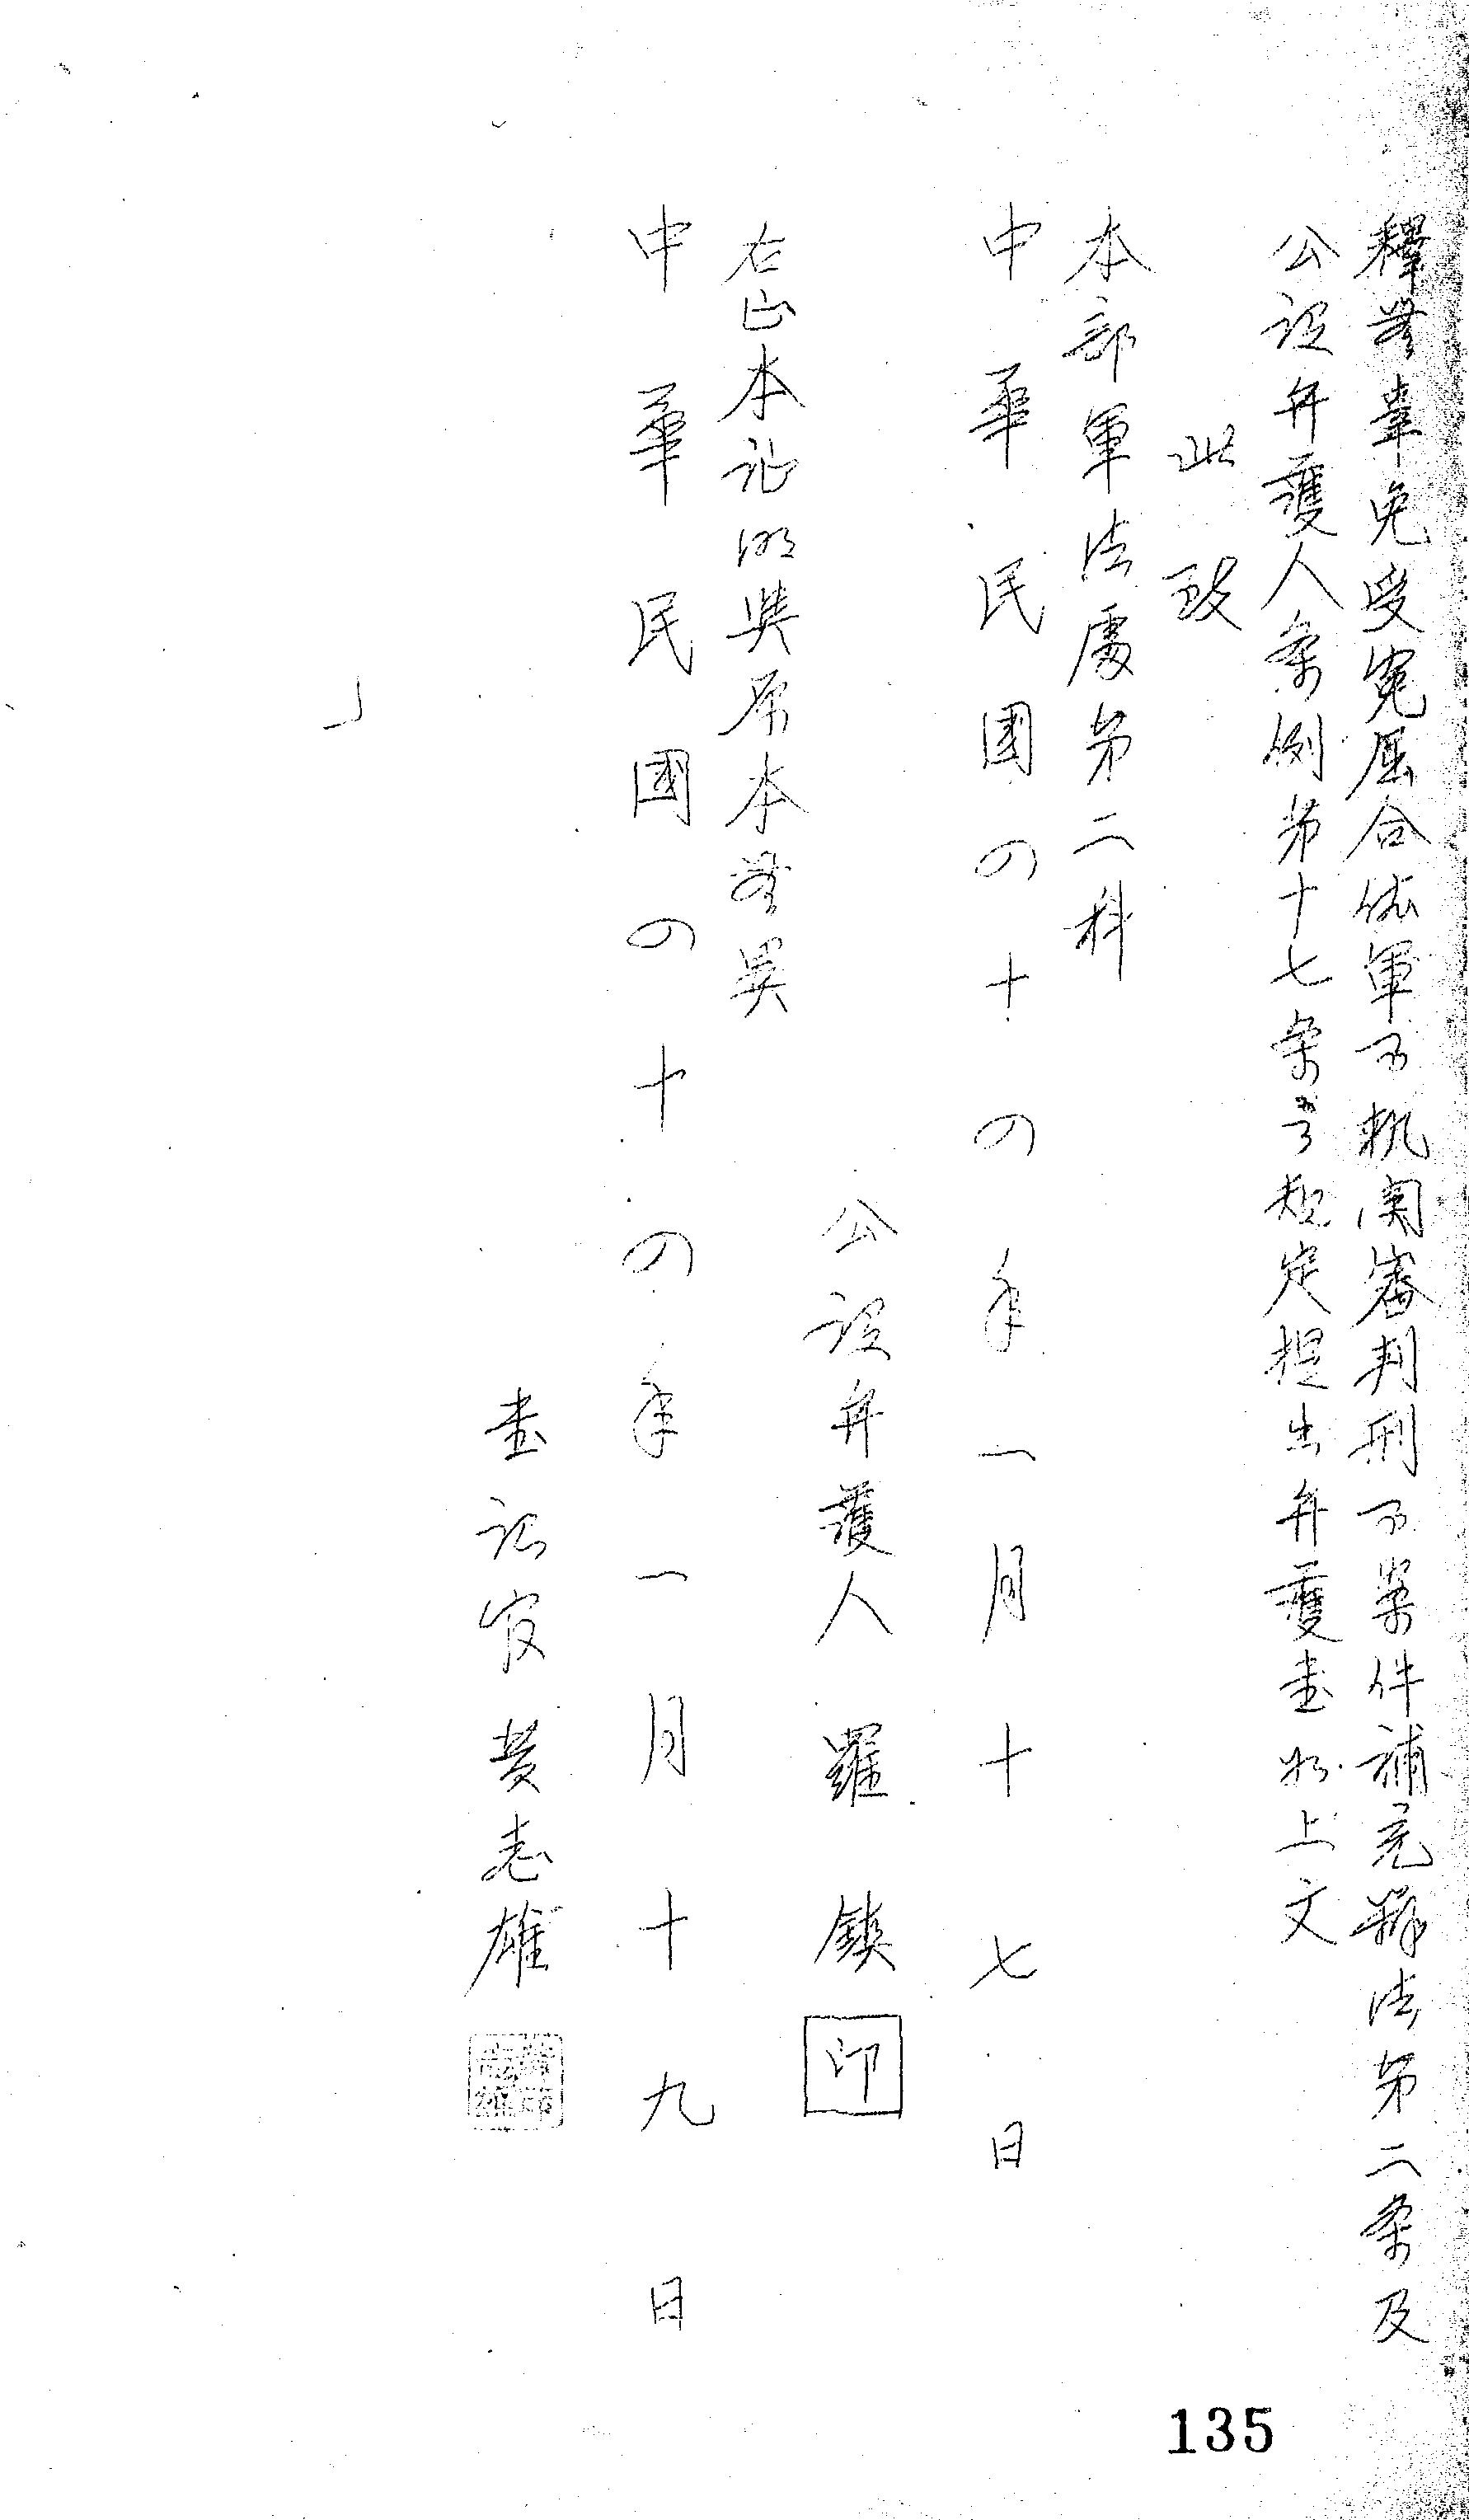 釋無辜免受冤屈合依軍事机関審判刑事案件補充辦法第二条及
公設弁護人条例第十七条之規定提出弁護書如上文
此致
本部軍法處第二科
中華民國四十四年一月十七日
公設弁護人羅鎮
印
右正本証明與原本無異
中華民國四十四年一月十九日
書記官黃志雄
135